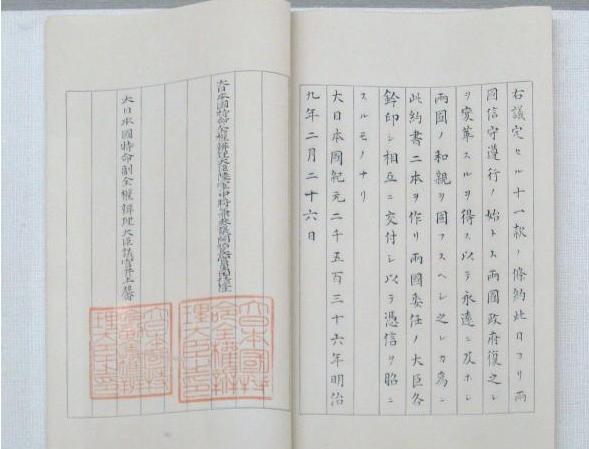 右議定セル十一款ノ條約此日ヨリ兩
國信守遵行ノ始トス兩國政府復之レ
ヲ變革スルヲ得ス以テ永遠ニ及ホシ
兩國ノ和親ヲ固フスヘシ之レカ爲ニ
此約書二本ヲ作リ兩國委任ノ大臣各
鈐印シ相互ニ交付シ以テ憑信ヲ昭ニ
スルモノナリ
大日本國紀元二千五百三十六年明治
九年二月二十六日
大日本國特命全權辨理大臣陸軍中將兼參議開拓長官黑田清隆
大日本國特命副全權辨理大臣議官井上馨